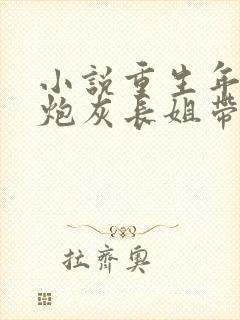 小說重生年
炮灰長姐帶
拉齊奧